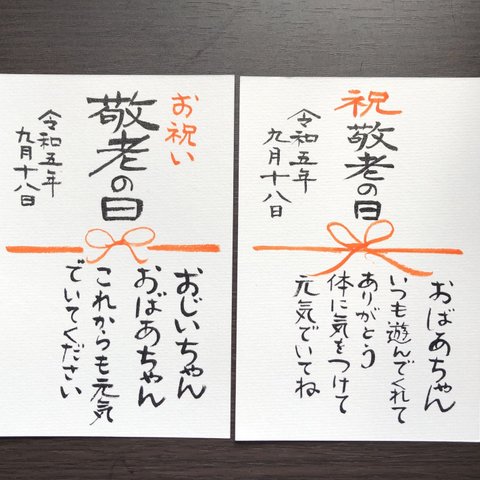 お祝い
敬老の日
令和五年
九月十八日
おじいちゃん
おばあちゃん
これからも元気
でいてください
祝
敬老の日
令和五年
九月十八日
おばあちゃん
いつも遊んでくれて
ありがとう
体に気をつけて
元気でいてね